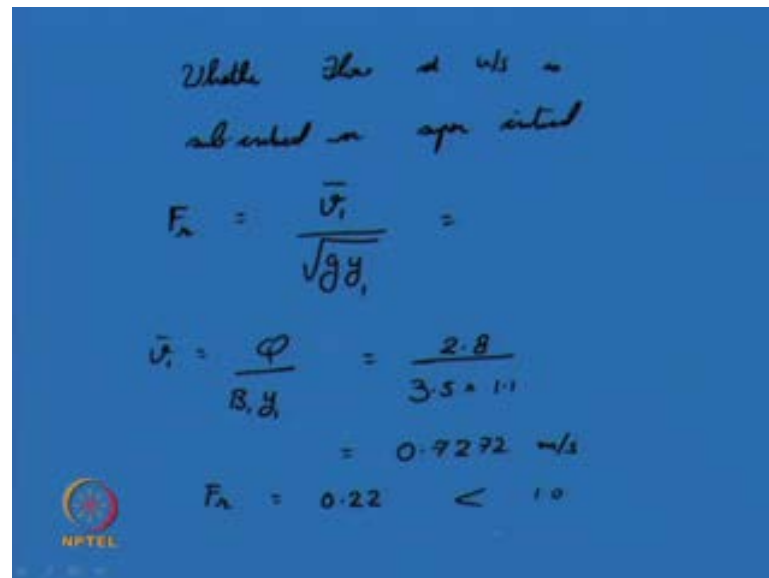 Whethe Flow at u/s is
sub critical or super critical
Fr = v̄₁ / √(g y₁) =
v̄₁ = Q / (B₁ y₁) = 2.8 / (3.5 * 1.1)
= 0.7272 m/s
Fr = 0.22 < 1.0
NPTEL